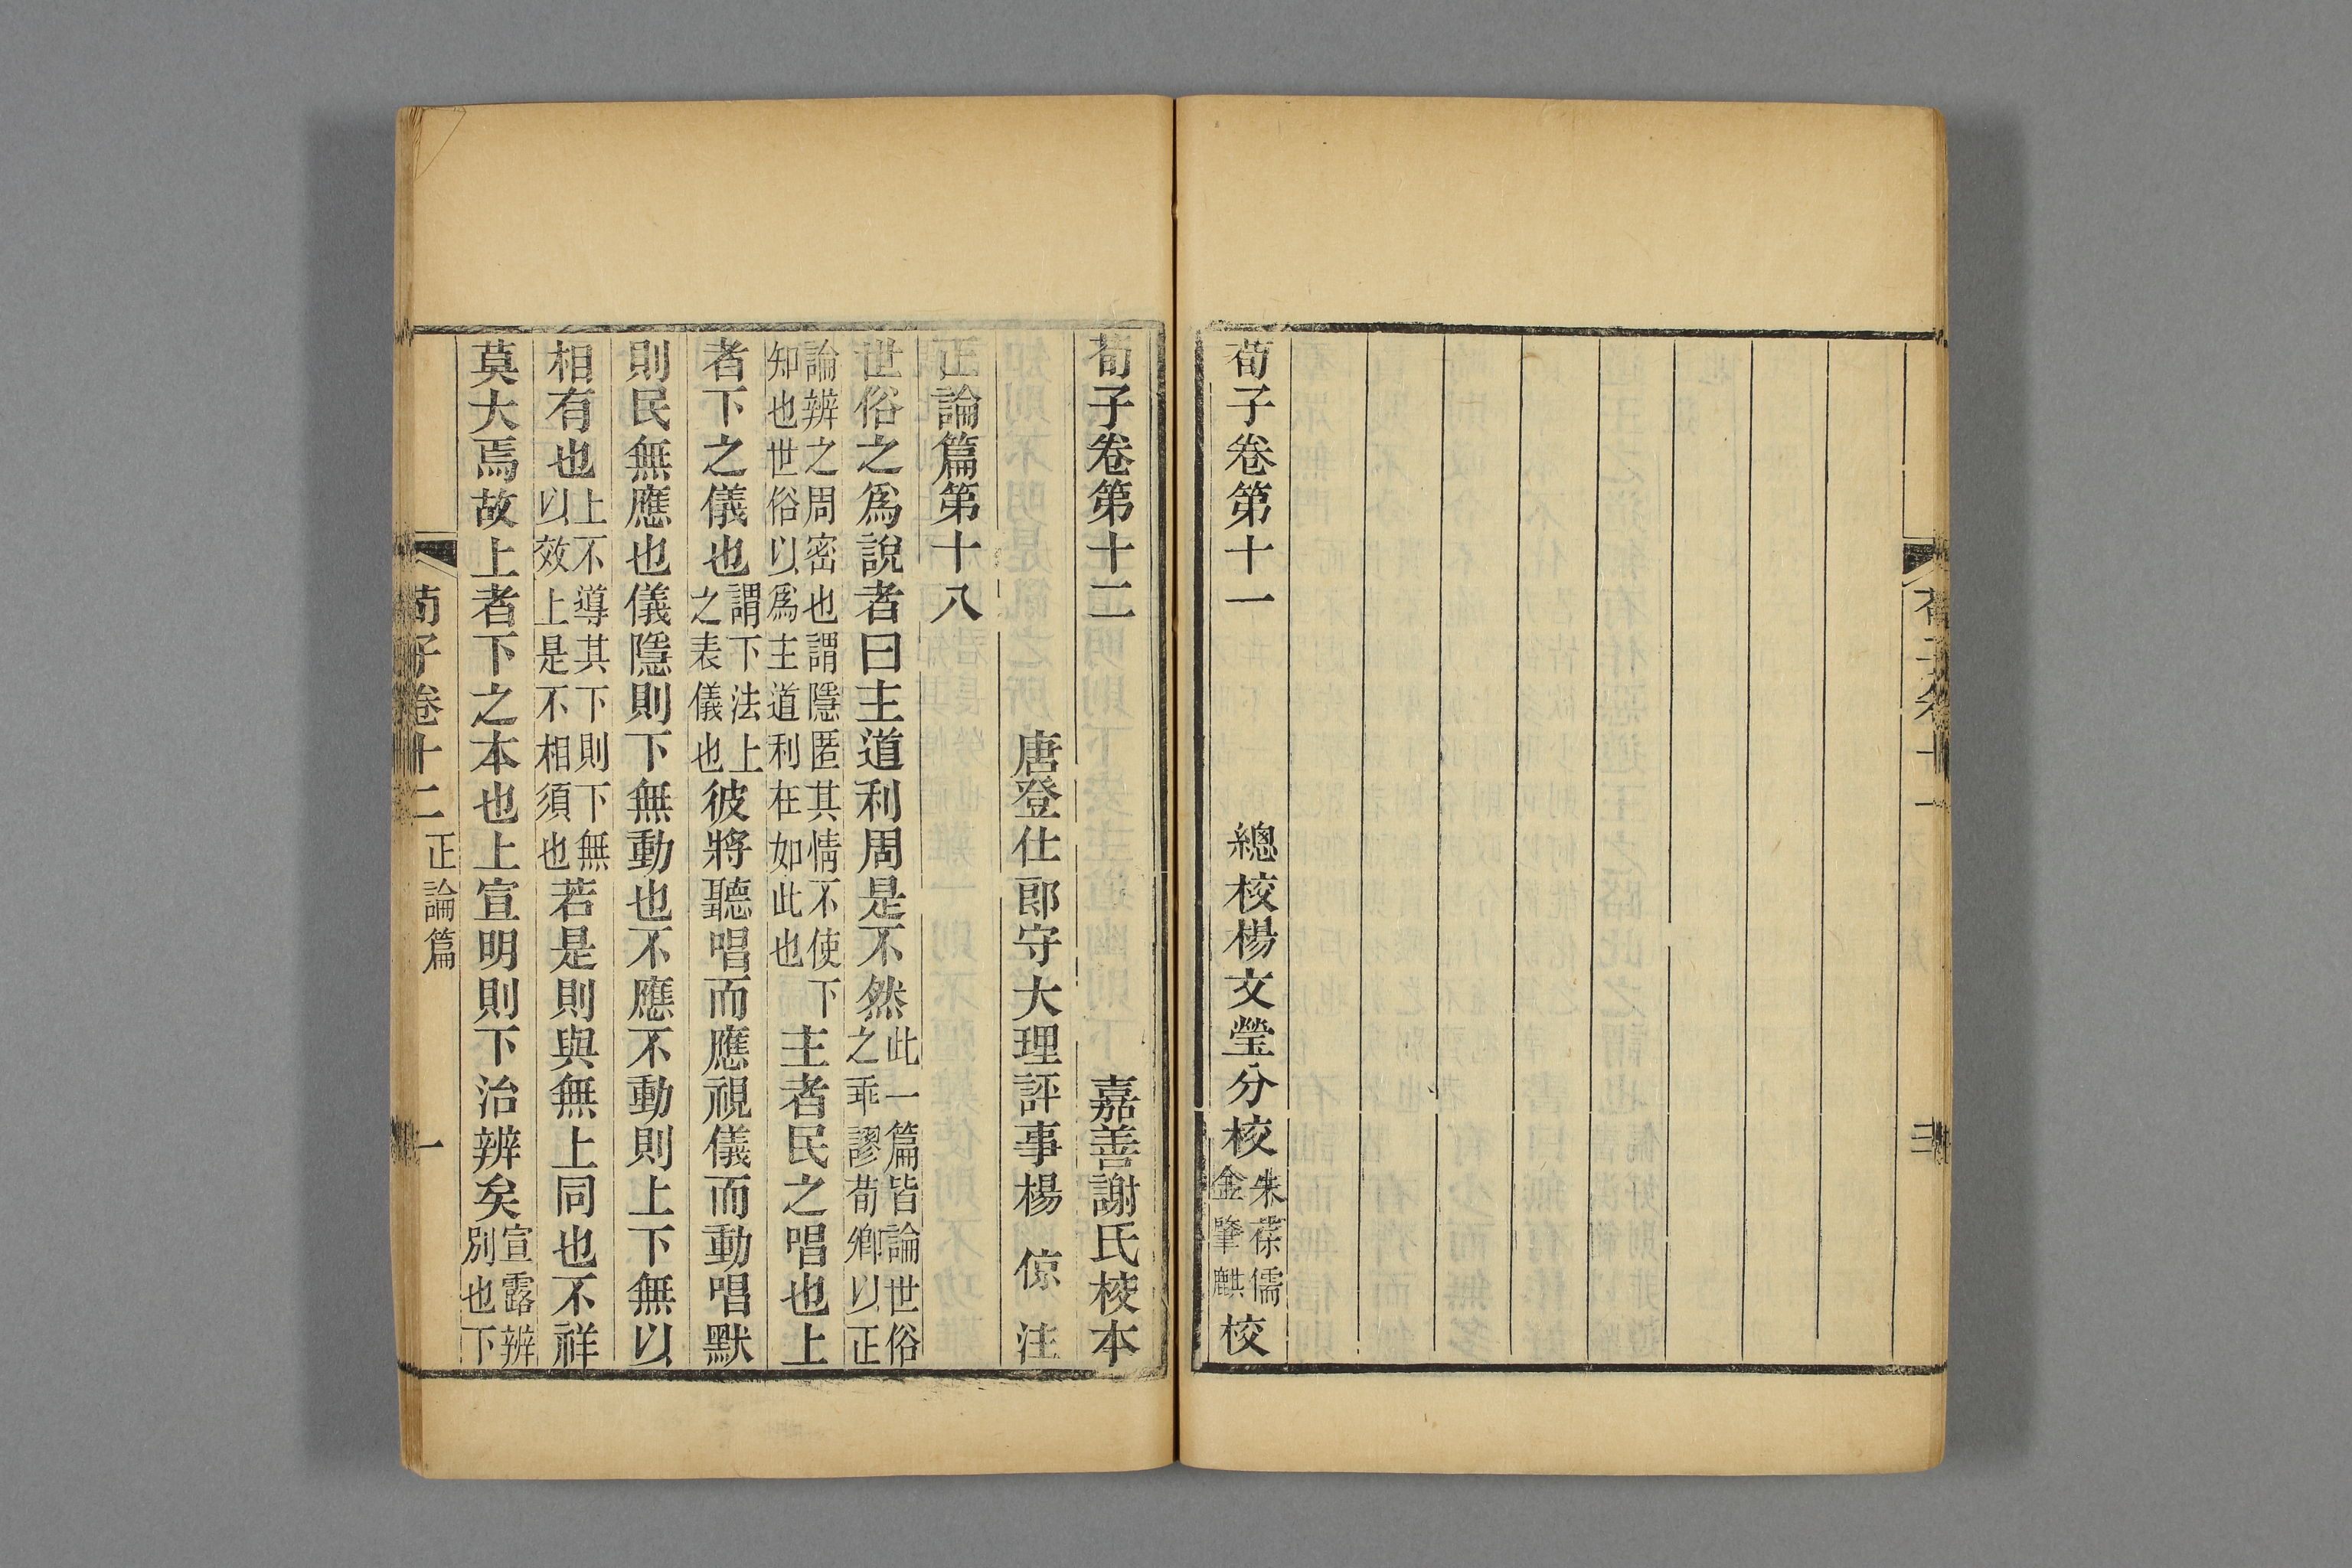 荀子卷第十一　總校楊文瑩分校朱葆儒金肇麒校
荀子卷第十二　嘉善謝氏校本
唐登仕郎守大理評事楊倞注
正論篇第十八
世俗之爲說者曰主道利周是不然此一篇皆論世俗之乖謬荀卿以正
論辨之周密也謂隱匿其情不使下知也世俗以爲主道利在如此也主者民之唱也上
者下之儀也謂下法上之表儀也彼將聽唱而應視儀而動唱默
則民無應也儀隱則下無動也不應不動則上下無以
相有也上不導其下則下無以效上是不相須也若是則與無上同也不祥
莫大焉故上者下之本也上宣明則下治辨矣宣露辨別也下
荀子卷十二　正論篇　一